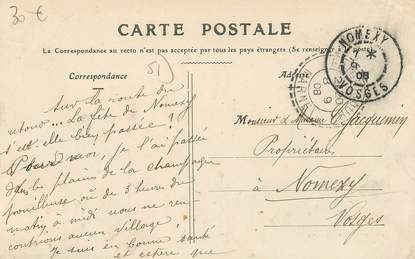 30 €
CARTE POSTALE
La Correspondance au recto n'est pas acceptée par tous les pays étrangers (Se renseigner à la poste)
Correspondance
51
Adresse
NOMEXY
08
VOSGES
9
08
Sur la route du
retour ... La fête de Nomexy
s'est-elle bien passée ?
Pour moi, je l'ai passée
dans les plaines de la champagne
pouilleuse où de 3 heures du
matin à midi nous ne ren-
controns aucun village.
Je suis en bonne santé
et espère que
Monsieur L. Jacquemin
Propriétaire
à Nomexy
Vosges